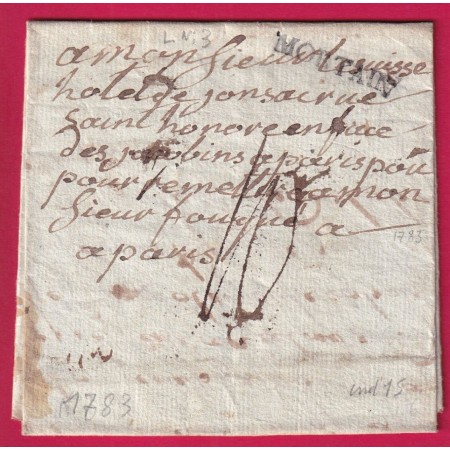 L N: 3
MORTAIN
a monsieur le suisse
hotel de jonsac rue
saint honore en face
des jacobins a paris pou
pour remettre a mon
sieur fouque a
a paris
1783
1783
ind 15